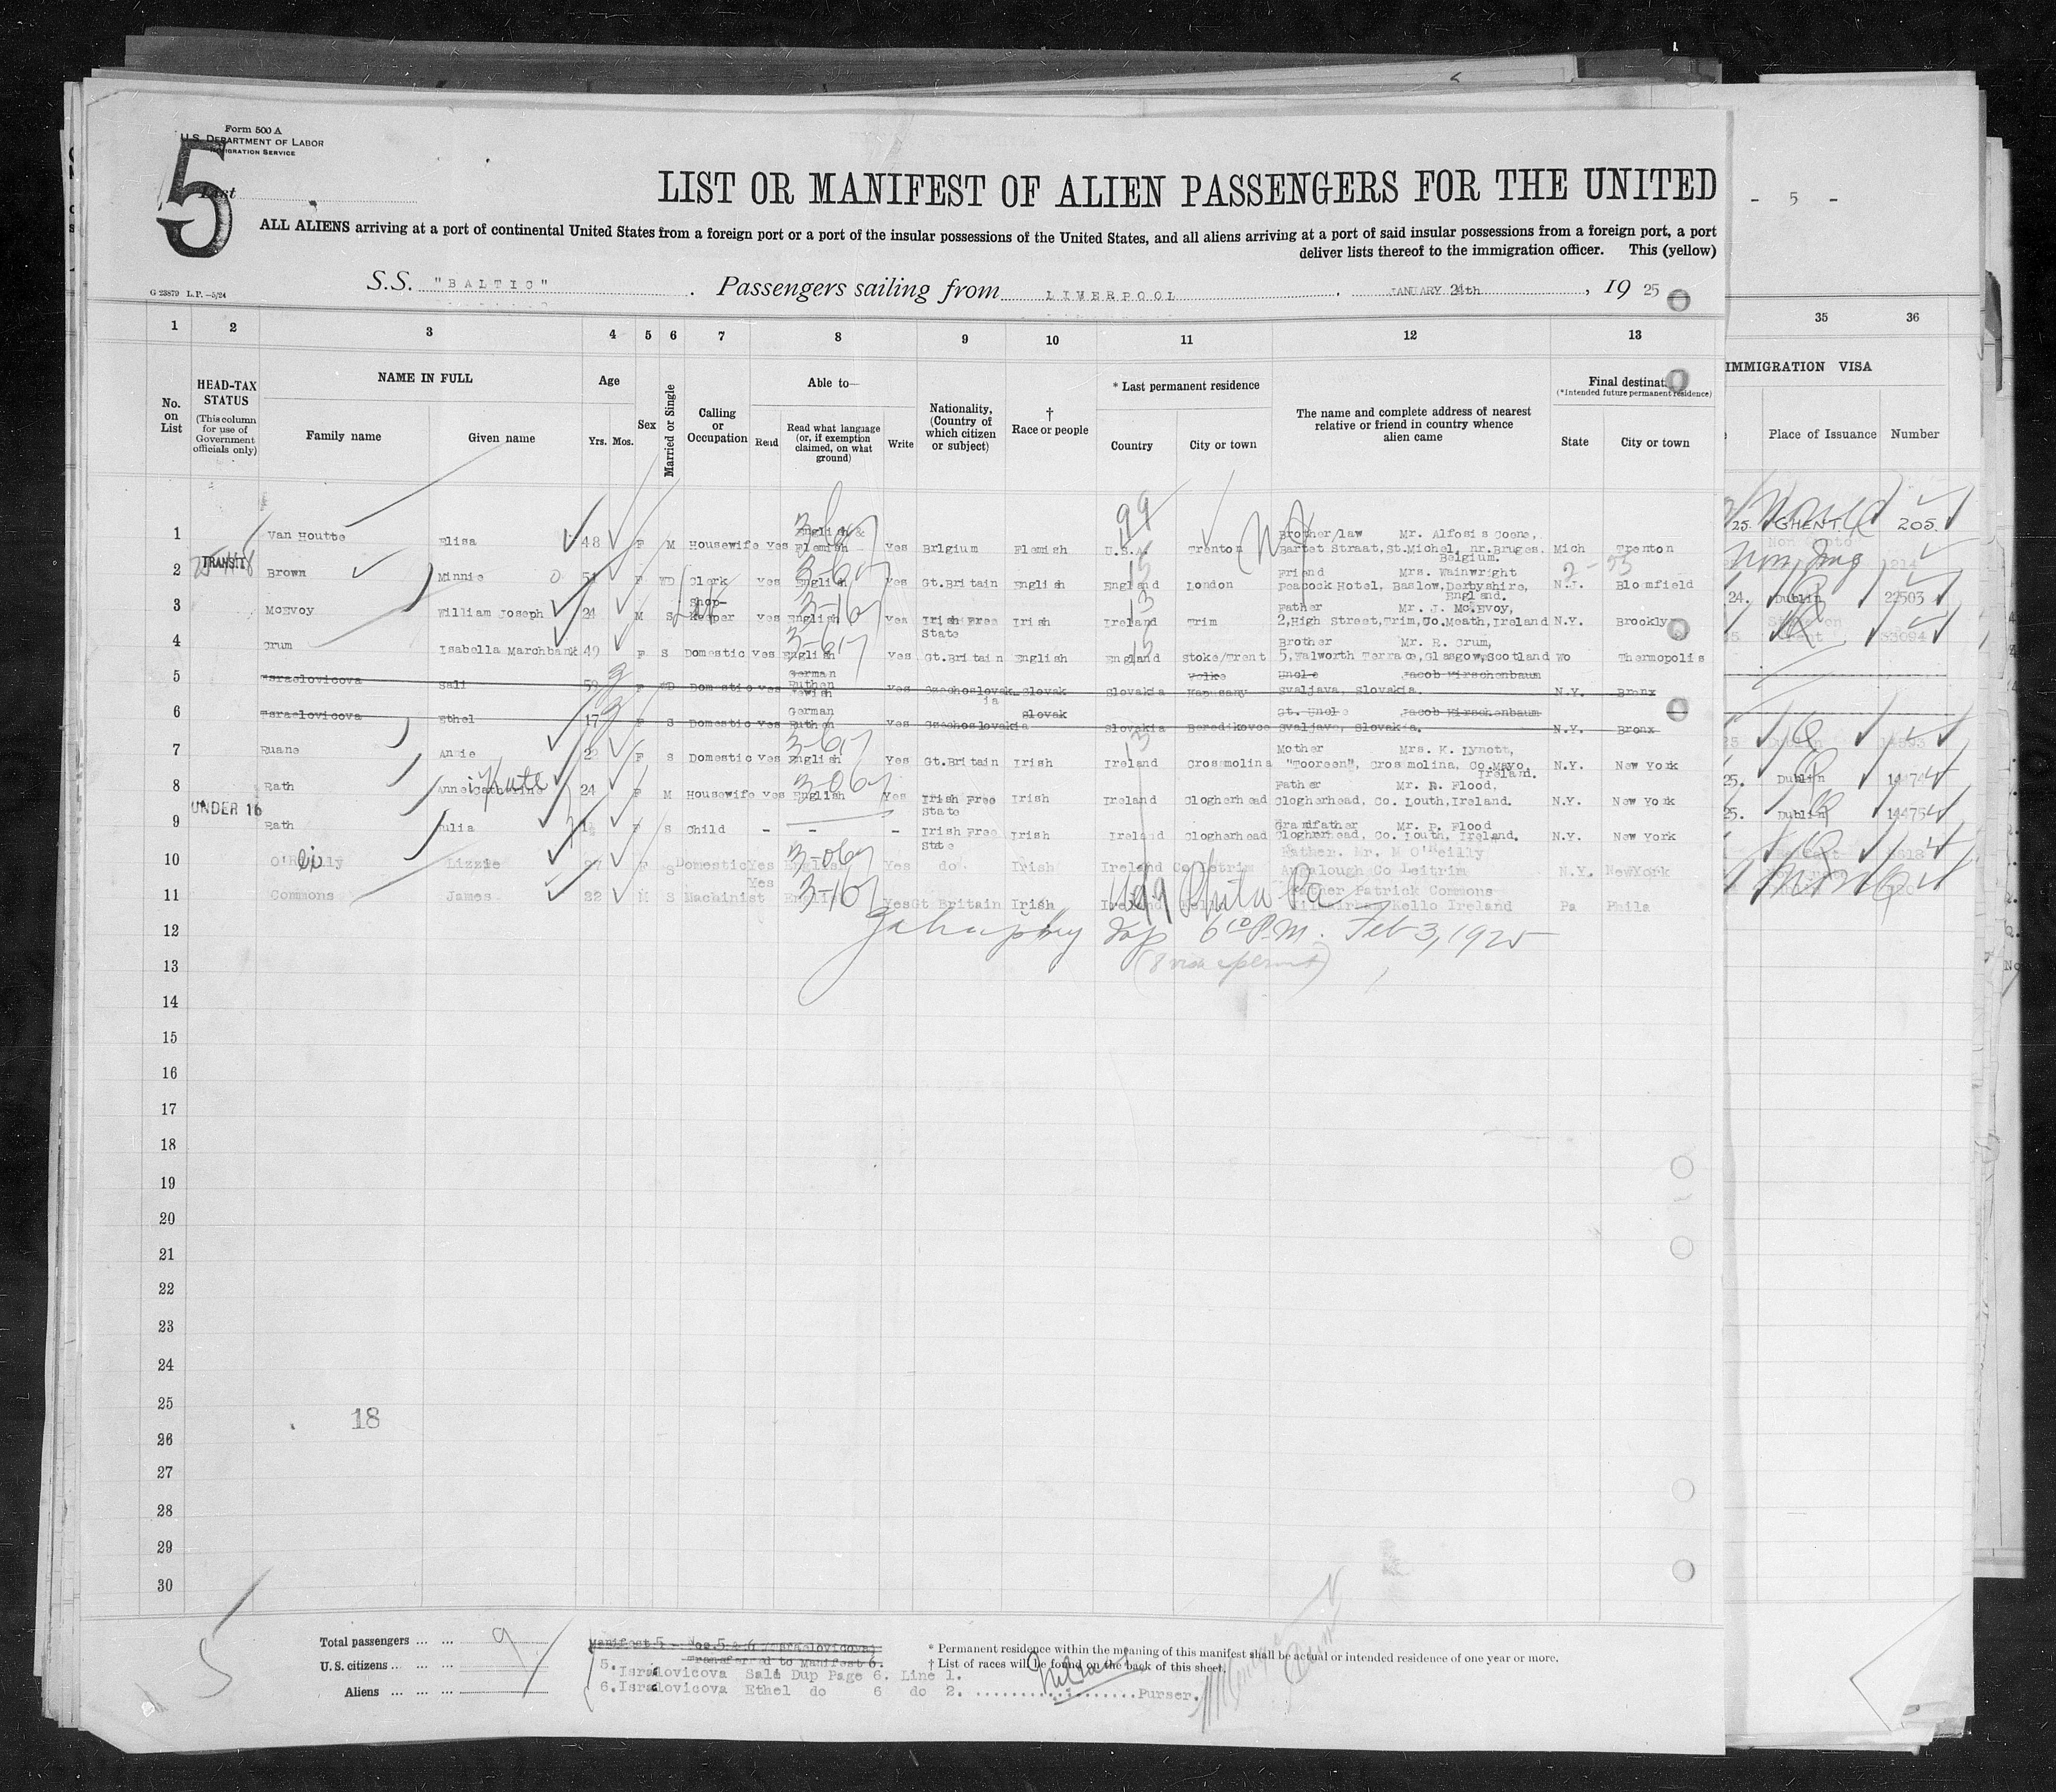 Form 500 A
U.S. DEPARTMENT OF LABOR
IMMIGRATION SERVICE
5
List
LIST OR MANIFEST OF ALIEN PASSENGERS FOR THE UNITED
- 5 -
ALL ALIENS arriving at a port of continental United States from a foreign port or a port of the insular possessions of the United States, and all aliens arriving at a port of said insular possessions from a foreign port, a port
deliver lists thereof to the immigration officer. This (yellow)
G 23879 L.P.—5/24
S.S. "BALTIC". Passengers sailing from LIVERPOOL. JANUARY 24th, 1925
1 2 3 4 5 6 7 8 9 10 11 12 13 35 36
No. on List
HEAD-TAX STATUS (This column for use of Government officials only)
NAME IN FULL
Family name Given name
Age
Yrs. Mos.
Sex
Married or Single
Calling or Occupation
Able to—
Read Read what language (or, if exemption claimed, on what ground) Write
Nationality, (Country of which citizen or subject)
† Race or people
* Last permanent residence
Country City or town
The name and complete address of nearest relative or friend in country whence alien came
Final destinat
(*Intended future permanent residence)
State City or town
IMMIGRATION VISA
Place of Issuance Number
1 Van Houtte Elisa 48 F M Housewife Yes English & Flemish Yes Brlgium Flemish U.S.A. Trenton Brother/law Mr. Alfosis Coene, Bartet Straat, St.Michel, nr.Bruges. Belgium. Mich Trenton 25. GHENT. 205.
TRANSIT
2 Brown Minnie 51 F WD Clerk Yes English Yes Gt.Britain English England London Friend Mrs. Wainwright Peacock Hotel, Baslow, Derbyshire, England. N.J. Blomfield
3 McEvoy William Joseph 24 M S Shop-Keeper Yes English Yes Irish Free State Irish Ireland Trim Father Mr. J. McEvoy, 2,High Street,Trim,Co.Meath,Ireland N.Y. Brooklyn 24. Dublin 22503
4 Crum Isabella Marchbank 49 F S Domestic Yes English Yes Gt.Britain English England Stoke/Trent Brother Mr. R. Crum, 5,Walworth Terrace,Glasgow,Scotland Wo Thermopolis
5 Israelovicova Sali 59 F WD Domestic Yes German Ruthen Yewish Yes Czechoslovakia Slovak Slovakia Velke Kapusany Uncle Jacob Hirschenbaum Svaljava, Slovakia. N.Y. Bronx
6 Israelovicova Ethel 17 F S Domestic Yes German Ruthen Yes Czechoslovakia Slovak Slovakia Beredikovce Gt. Uncle Jacob Hirschenbaum Svaljava, Slovakia. N.Y. Bronx
7 Ruane Annie 22 F S Domestic Yes English Yes Gt.Britain Irish Ireland Crosmolina Mother Mrs. K. Lynott, "Tooreen", Crosmolina, Co.Mayo, Ireland. N.Y. New York
8 Rath Annie Catherine 24 F M Housewife Yes English Yes Irish Free State Irish Ireland Clogherhead Father Mr. R. Flood, Clogherhead, Co. Louth,Ireland. N.Y. New York 25. Dublin 14474
UNDER 16
9 Rath Julia F S Child - - - Irish Free State Irish Ireland Clogherhead Grandfather Mr. P. Flood Clogherhead, Co. Louth, Ireland. N.Y. New York 25. Dublin 14475
10 O'Reilly Lizzie 27 F S Domestic Yes English Yes do Irish Ireland Co Letrim Father. Mr. M O'Reilly Co Leitrim N.Y. NewYork
11 Commons James 22 M S Machinist Yes English Yes Gt Britain Irish Ireland Father Patrick Commons Kello Ireland Pa Phila
Phila Pa
12
6 10 P.M. Feb 3, 1925
13
14
15
16
17
18
19
20
21
22
23
24
25
18
26
27
28
29
30
5
Total passengers ... ... 9
U.S. citizens ... ...
Aliens ... ... ...
Manifest 5 - Nos.5 & 6 Israelovicova;
Transferred to Manifest 6.
5. Israelovicova Sali Dup Page 6. Line 1.
6. Israelovicova Ethel do 6 do 2. Purser.
* Permanent residence within the meaning of this manifest shall be actual or intended residence of one year or more.
† List of races will be found on the back of this sheet.